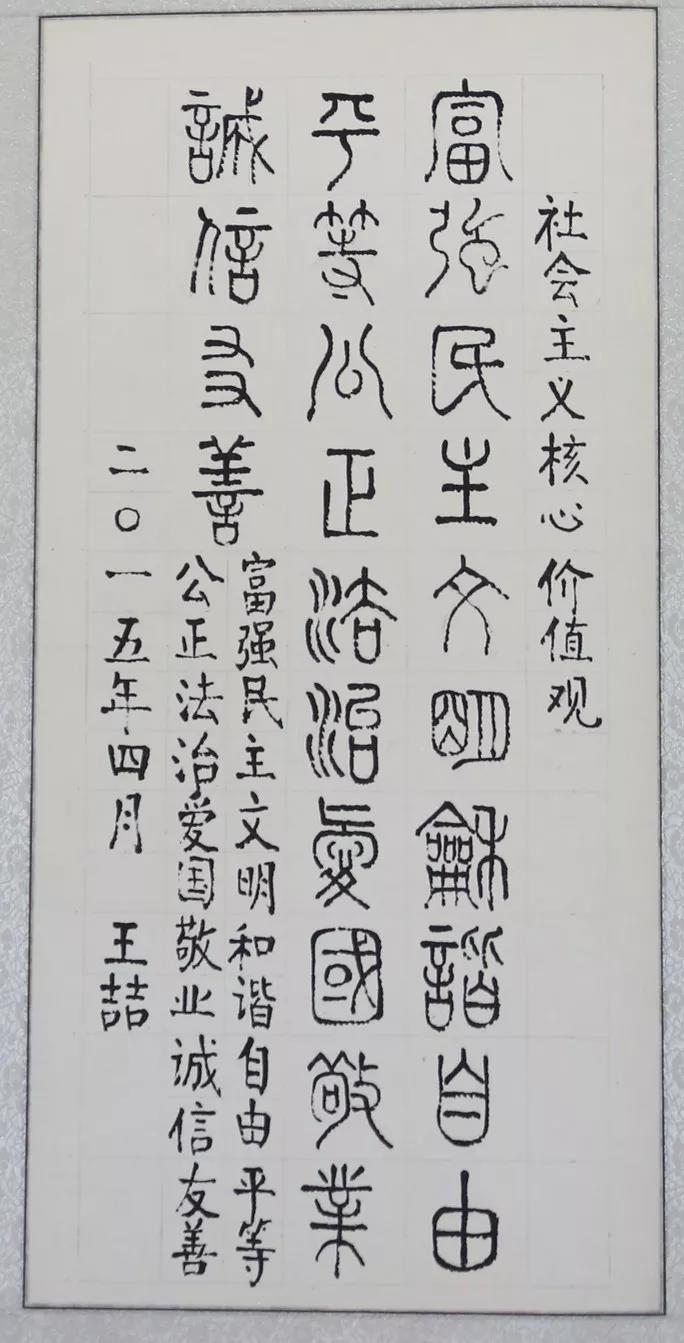 社会主义核心价值观
富強民主文明龢諧自由
平等公正法治愛國敬業
誠信友善
富强民主文明和谐自由平等
公正法治爱国敬业诚信友善
二〇一五年四月 王喆